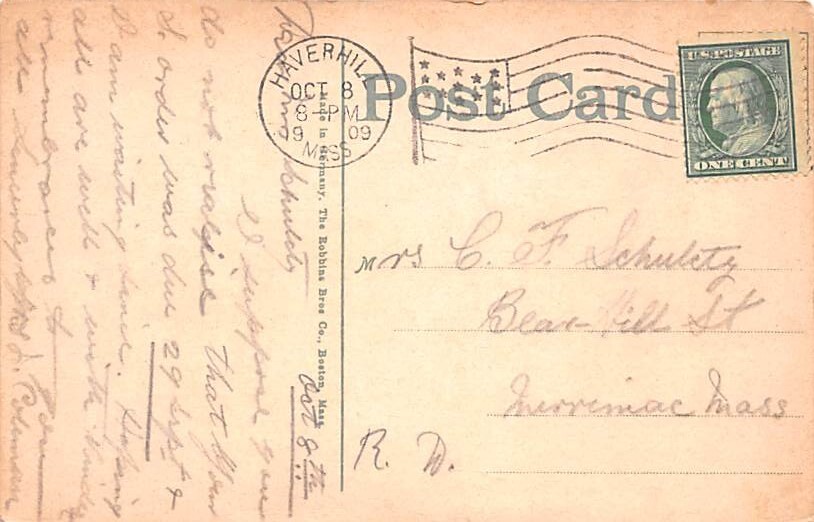 Post Card
HAVERHILL
OCT 8
8-PM
1909
MASS
U.S. POSTAGE
ONE CENT
Made in Germany. The Robbins Bros Co., Boston, Mass.
Mrs C. F. Schultz
Bear Hill St
Merrimac Mass
R. D.
Oct 8th
Schultz
I suppose you
do not realise that your
S. order was due 29 Sept &
I am waiting same. Hoping
all are well & with kind
remembrances to you
all Sincerely Mrs J. Coleman